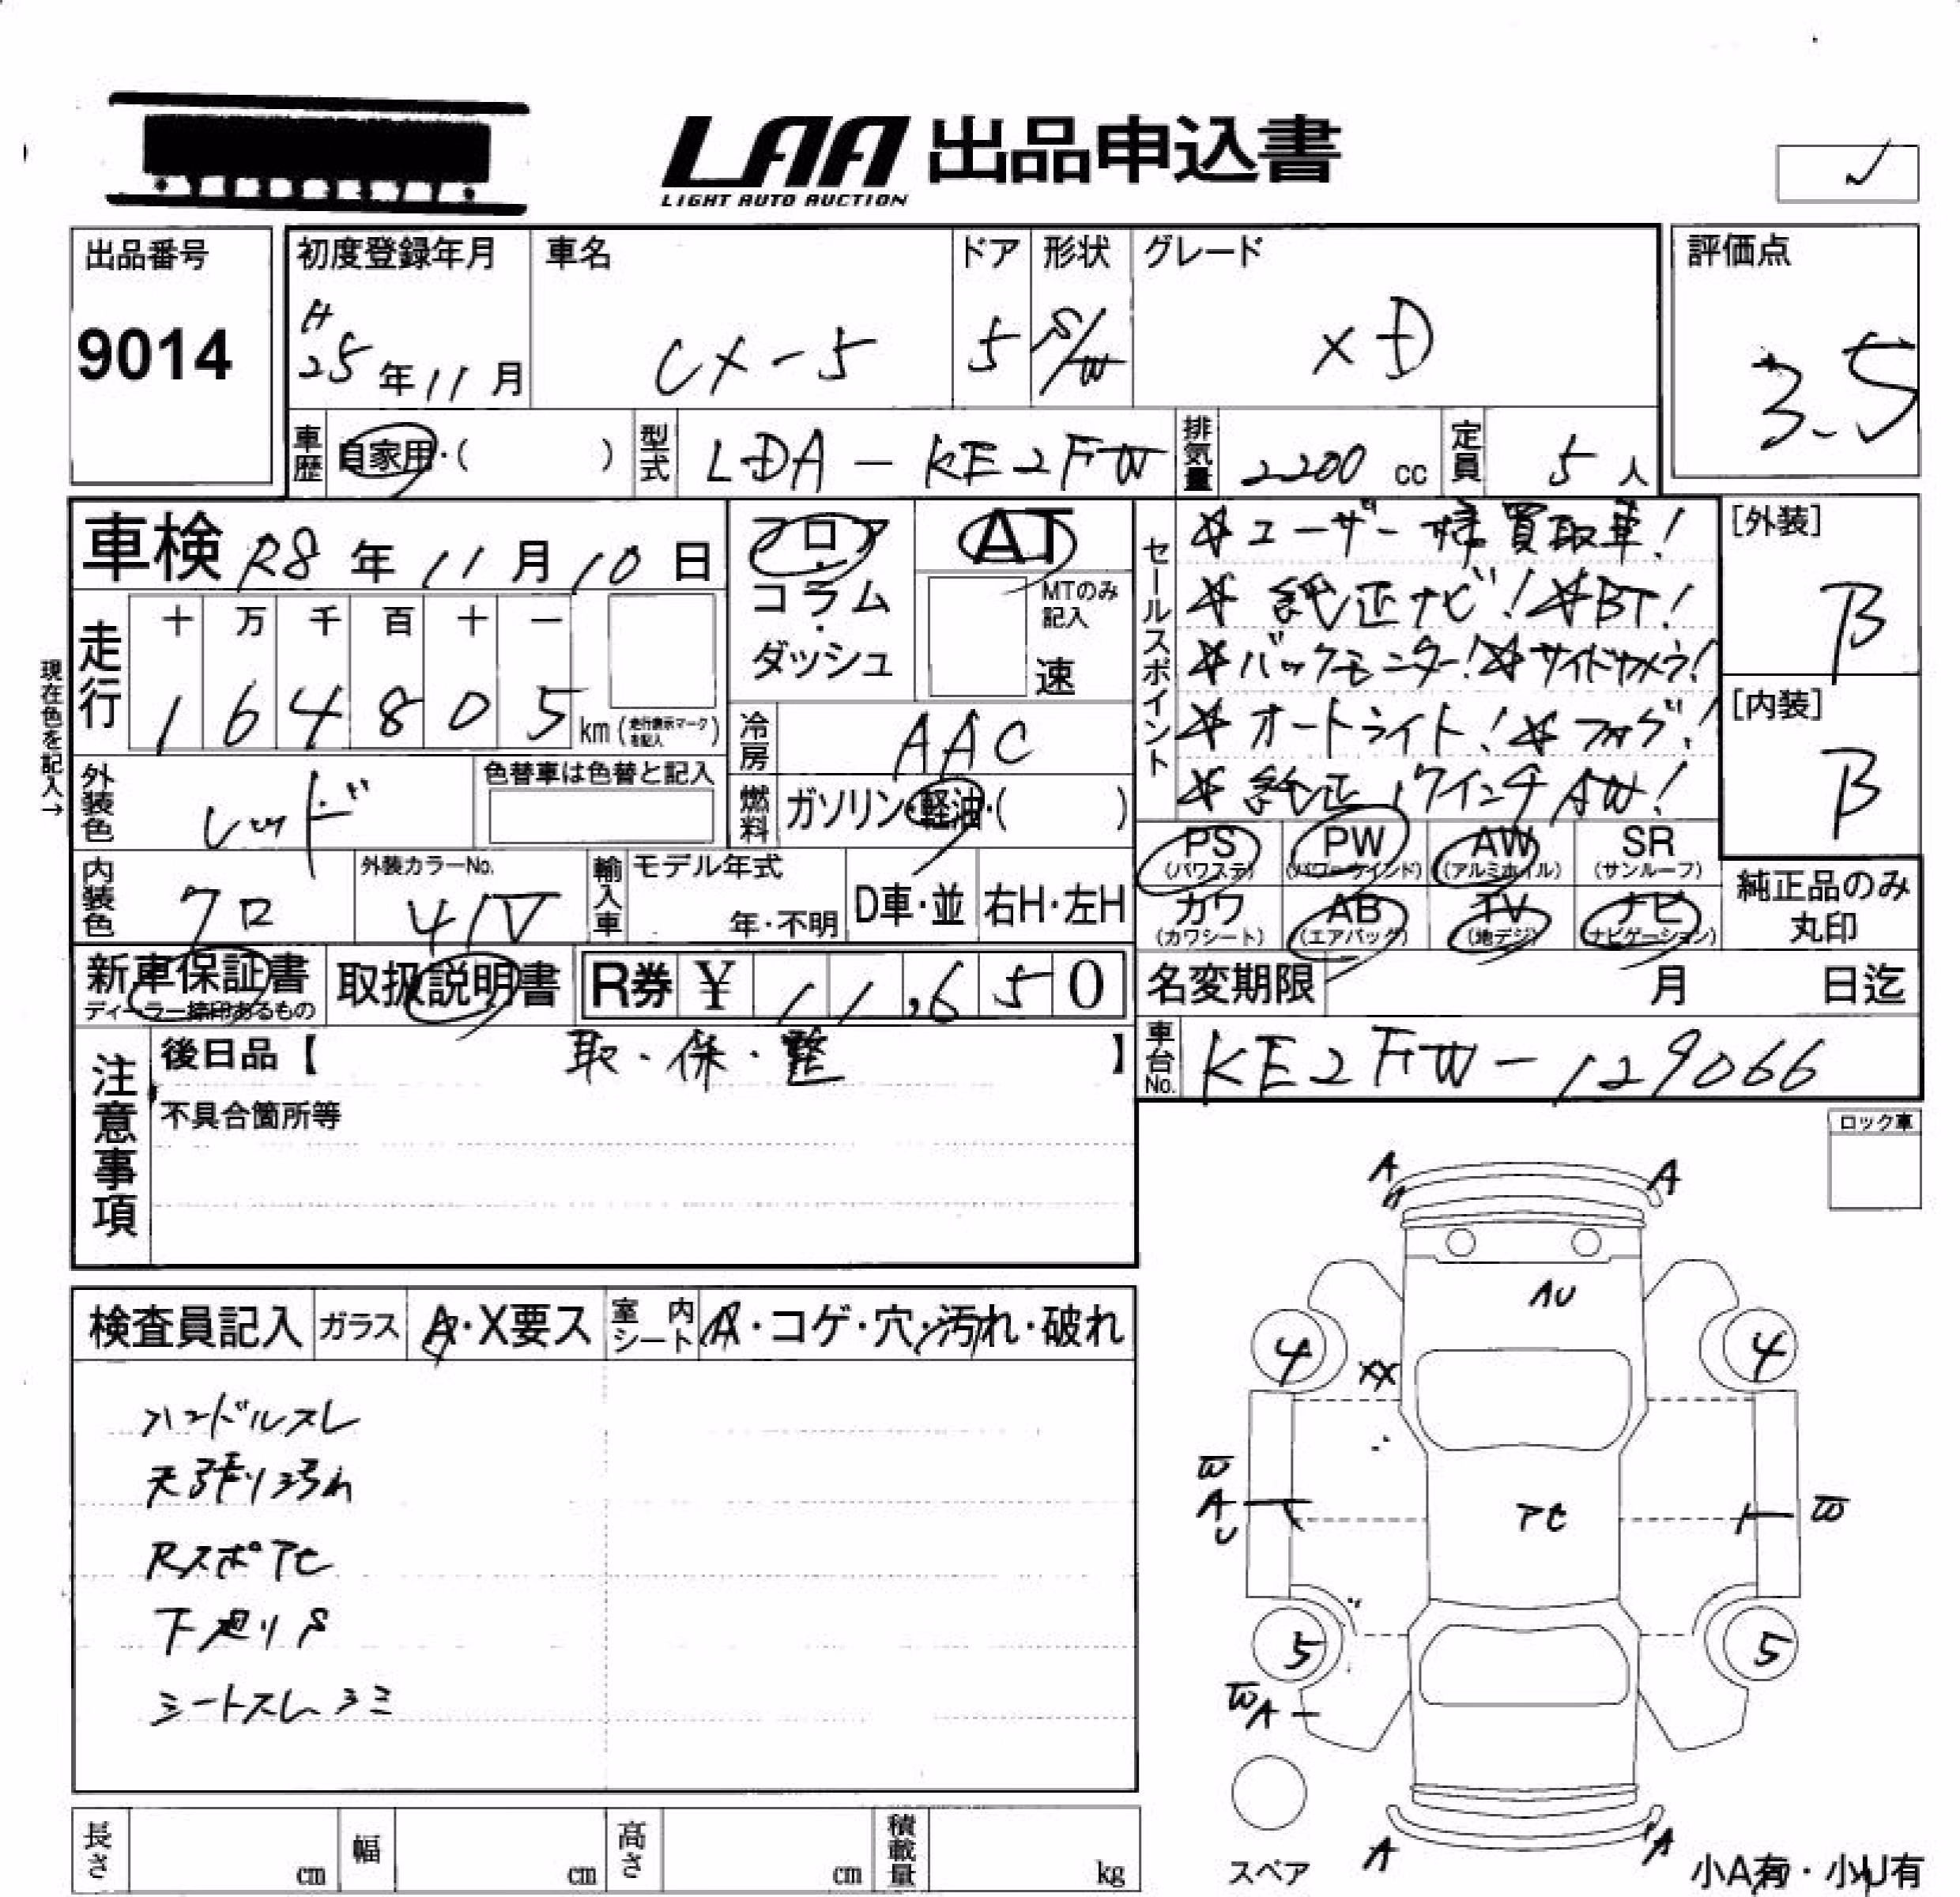 LAA 出品申込書
LIGHT AUTO AUCTION
出品番号
9014
初度登録年月
H
25年11月
車名
CX-5
ドア
5
形状
S/W
グレード
XD
評価点
3.5
車歴
自家用・( )
型式
LDA-KE2FW
排気量
2200 cc
定員
5人
車検 R8年11月10日
フロア・コラム・ダッシュ
AT
MTのみ記入
速
現在色を記入→
走行
十 万 千 百 十 一
1 6 4 8 0 5 km (走行表示マークを記入)
冷房
AAC
外装色
レッド
色替車は色替と記入
燃料
ガソリン・軽油・( )
内装色
クロ
外装カラーNo.
41V
輸入車
モデル年式
年・不明
D車・並
右H・左H
セールスポイント
☆ユーザー様買取車!
☆純正ナビ!☆BT!
☆バックモニター!☆サイドカメラ!
☆オートライト!☆フォグ!
☆純正17インチAW!
[外装]
B
[内装]
B
PS (パワステ)
PW (パワーウインド)
AW (アルミホイル)
SR (サンルーフ)
カワ (カワシート)
AB (エアバッグ)
TV (地デジ)
ナビ (ナビゲーション)
純正品のみ丸印
新車保証書
ディーラー捺印あるもの
取扱説明書
R券 ¥ 11,650
名変期限 月 日迄
車台No.
KE2FW-129066
注意事項
後日品【 取・保・整 】
不具合箇所等
ロック車
検査員記入
ガラス
A・X要ス
室内シート
A・コゲ・穴・汚れ・破れ
ハンドルスレ
天張り汚れ
Rスポアセ
下廻りS
シートスレシミ
A
A
AU
4
4
XX
W
A
U
アセ
W
5
5
WA
A
A
スペア
小A有・小U有
長さ cm
幅 cm
高さ cm
積載量 kg